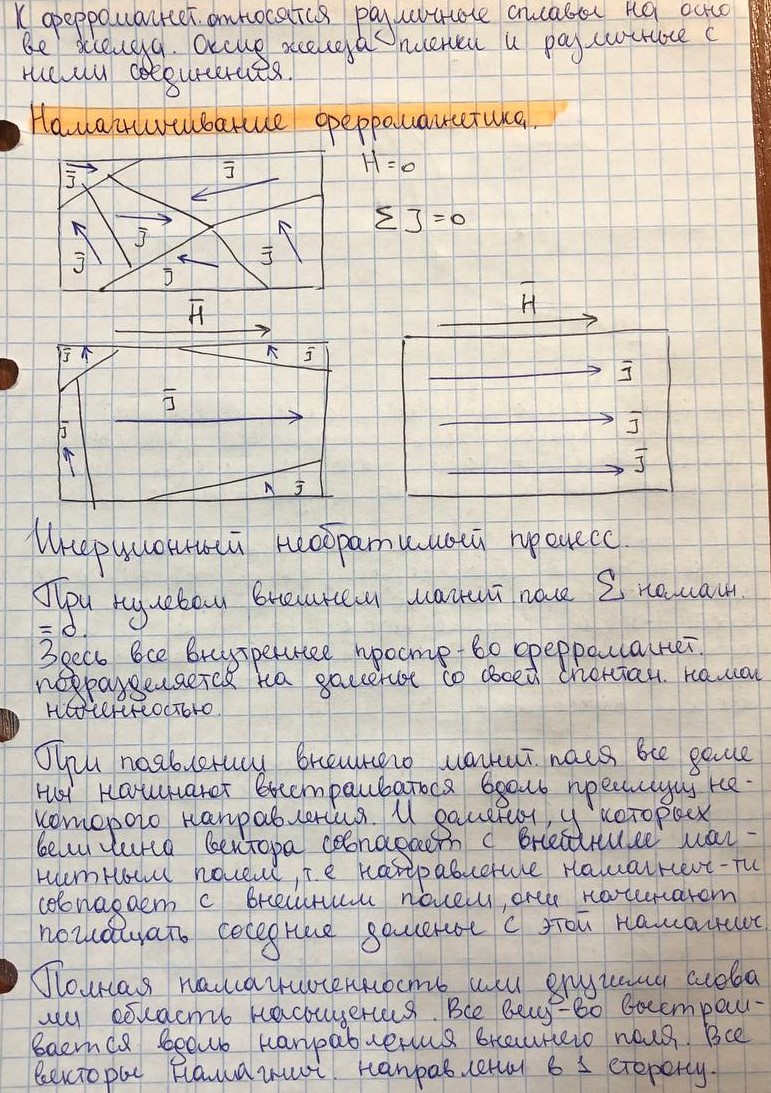 К ферромагнет. относятся различные сплавы на осно
ве железа. Оксид железа пленки и различные с
ними соединения.
Намагничивание ферромагнетика.
J̄ J̄ H=0
J̄ J̄ J̄ J̄ Σ J=0
H̄ H̄
J̄ J̄ J̄
J̄ J̄ J̄
J̄ J̄
Инерционный необратимый процесс.
При нулевом внешнем магнит поле Σ намагн.
= 0.
Здесь все внутреннее простр-во ферромагнет.
подразделяется на домены со своей спонтан. намаг
ниченностью.
При появлении внешнего магнит. поля все доме
ны начинают выстраиваться вдоль преимущ не-
которого направления. И домены, у которых
величина вектора совпадает с внешним маг-
нитным полем, т.е направление намагнич-ти
совпадает с внешним полем, они начинают
поглащать соседние домены с этой намагнич.
Полная намагниченность или другими слова
ми область насыщения. Все вещ-во выстраи-
вается вдоль направления внешнего поля. Все
векторы намагнич. направлены в 1 сторону.